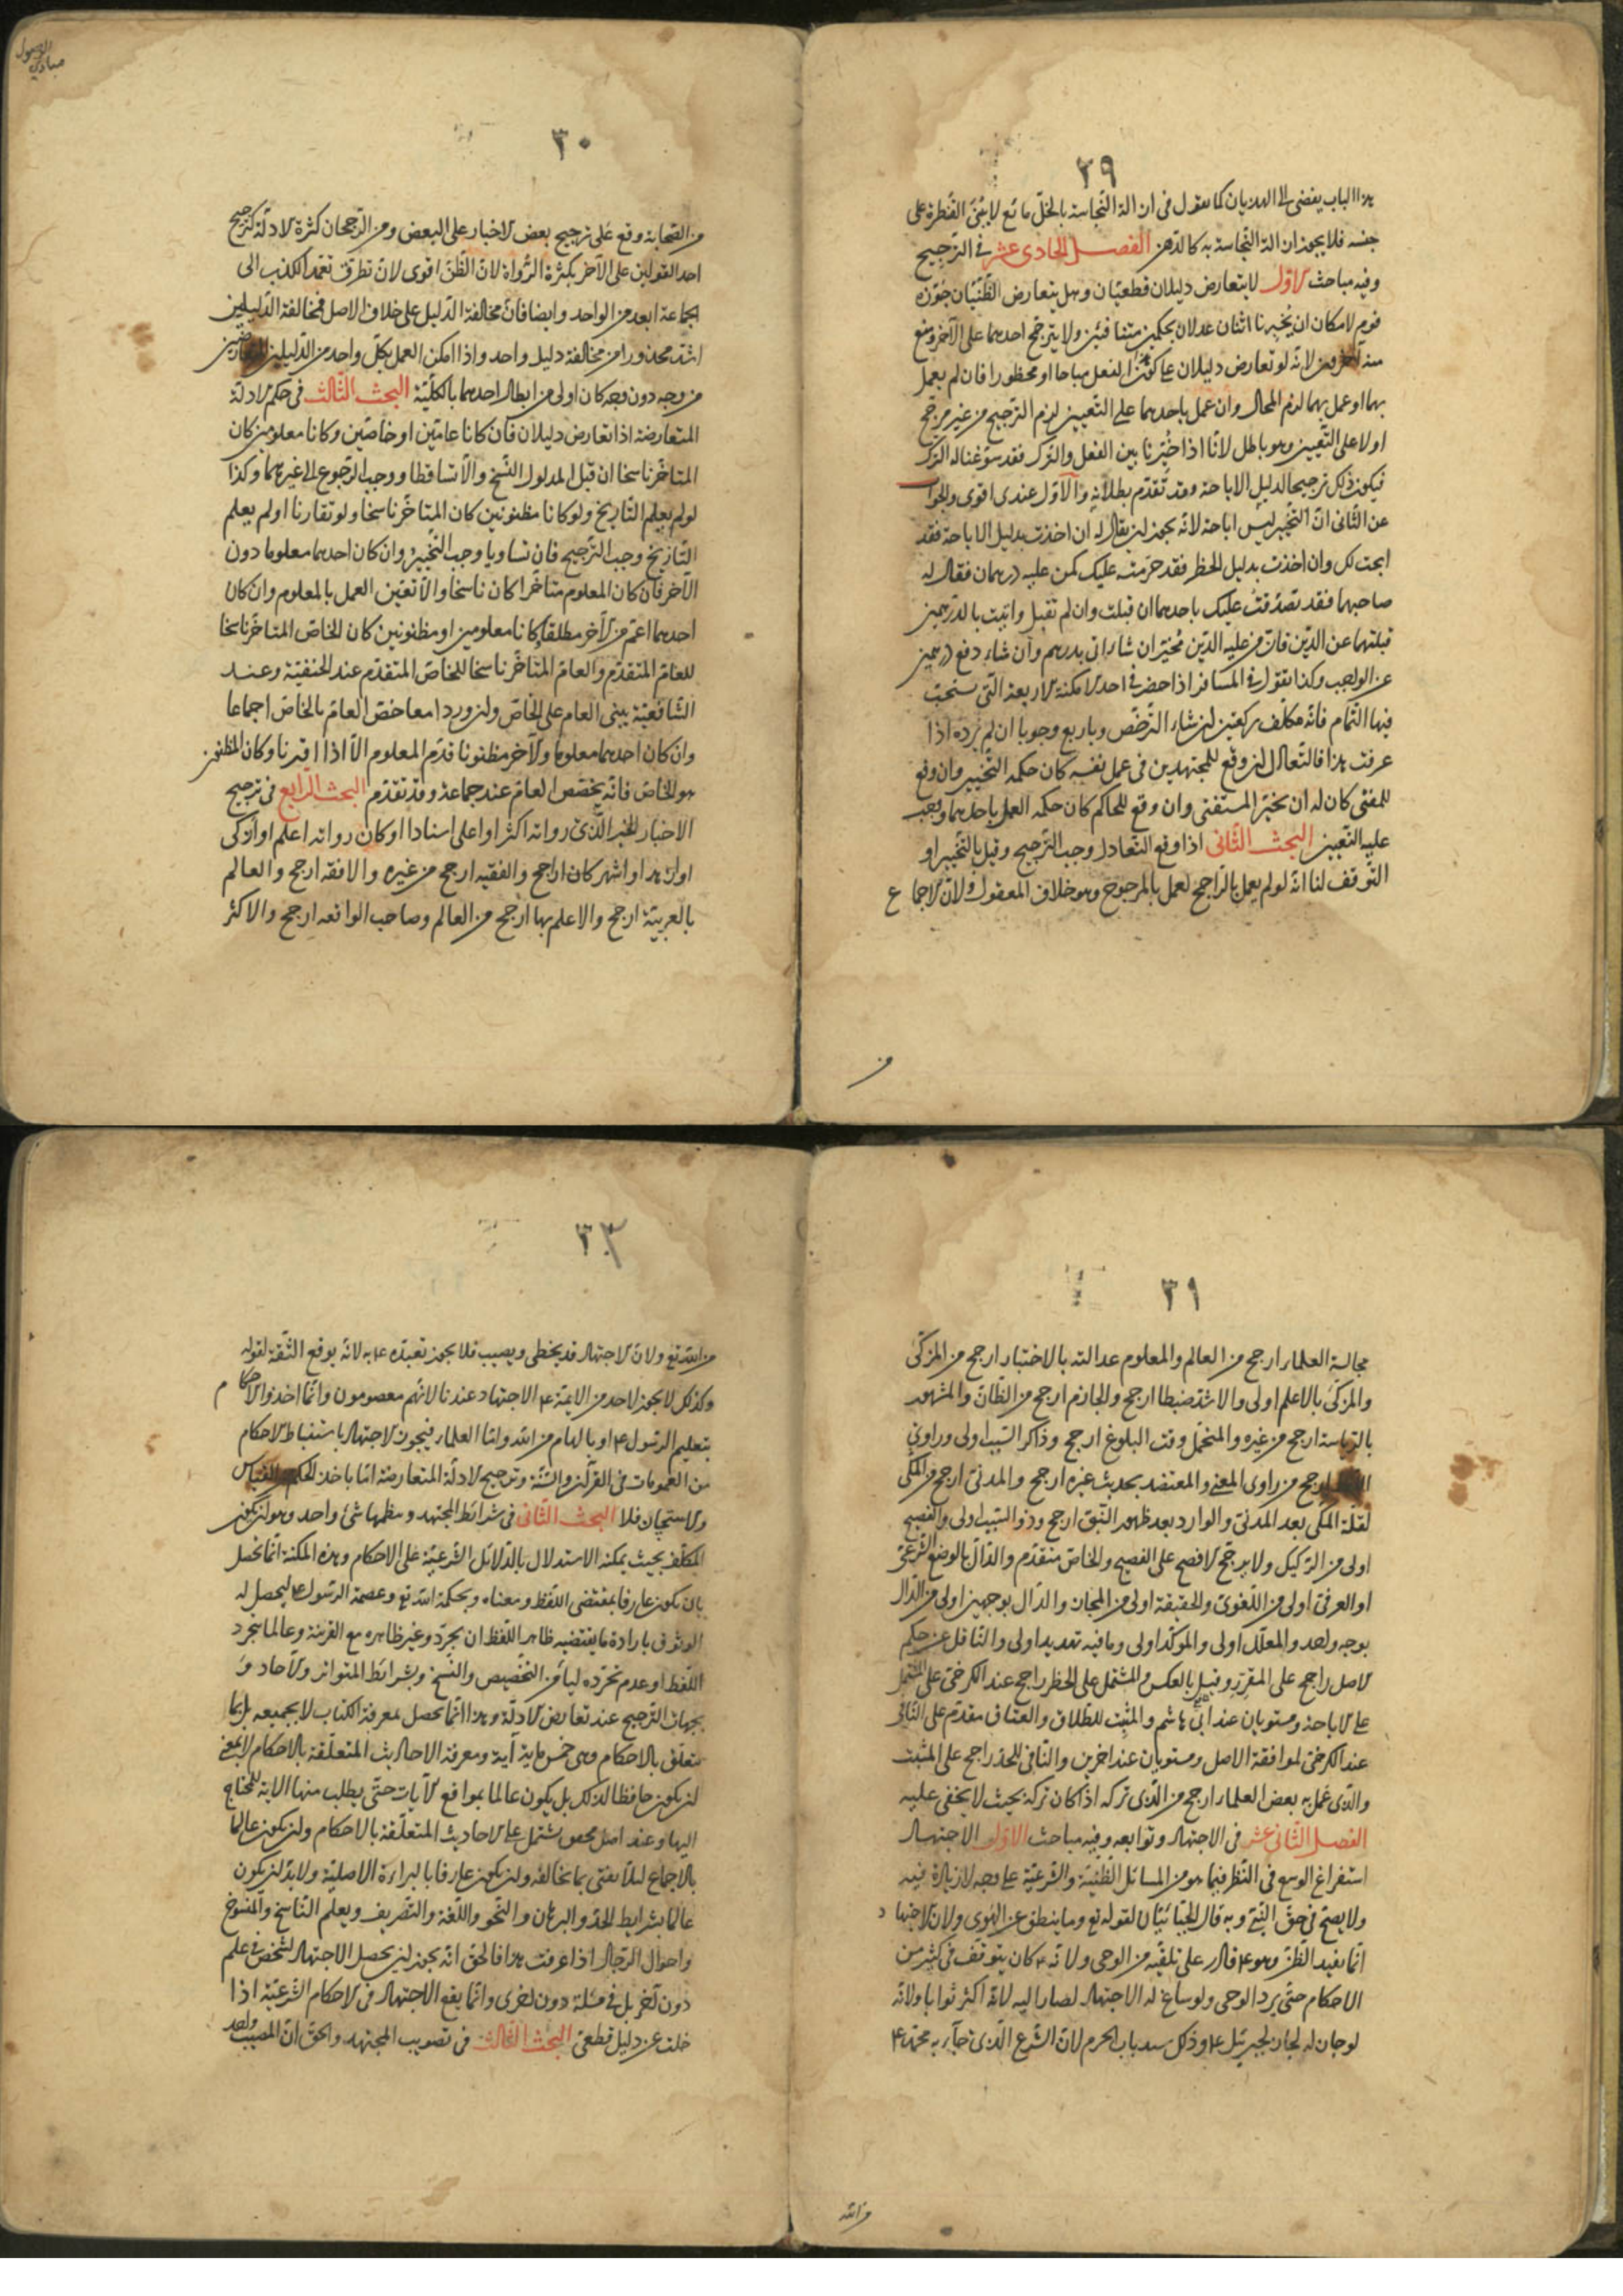 ٢٩
هذا الباب يفضى الى الهذيان كما يقول فى ازالة النّجاسة بالخلّ مائع لا يبنى القنطرة على
جنسه فلا يجوز ازالة النّجاسة به كالدّهن الفصل الحادى عشر فى التّرجيح
وفيه مباحث الاوّل لا يتعارض دليلان قطعيّان وهل يتعارض الظّنّيّان جوّزه
قوم لامكان ان يخبرنا اثنان عدلان بحكمين متنافيين ولا يترجّح احدهما على الآخر ومنع
منه آخرون لانّه لو تعارض دليلان على كون الفعل مباحا او محظورا فان لم يعمل
بهما او عمل بهما لزم المحال وان عمل باحدهما على التّعيين لزم التّرجيح من غير مرجّح
او لا على التّعيين وهو باطل لانّا اذا خيّرنا بين الفعل والتّرك فقد سوّغنا له التّرك
فيكون ذلك ترجيحا لدليل الاباحة وقد تقدّم بطلانه والاوّل عندى اقوى والجواب
عن الثّانى انّ التّخيير ليس اباحة لانّه يجوز ان يقال له ان اخذت بدليل الاباحة فقد
ابحت لك وان اخذت بدليل الحظر فقد حرّمت عليك كمن عليه درهمان فقال له
صاحبهما فقد تصدّقت عليك باحدهما ان قبلت وان لم تقبل واتيت بالدّرهمين
قبلتهما عن الدّين فانّ من عليه الدّين مخيّر ان شاء اتى بدرهم وان شاء دفع درهمين
عن الواجب وكذا نقول فى المسافر اذا حضر فى احد الامكنة الاربعة الّتى يستحبّ
فيها التّمام فانّه مكلّف بركعتين ان شاء التّرخّص وباربع وجوبا ان لم يرده اذا
عرفت هذا فالتّعادل ان وقع للمجتهدين فى عمل نفسه كان حكمه التّخيير وان وقع
للمفتى كان له ان يخيّر المستفتى وان وقع للحاكم كان حكمه العمل باحدهما ويجب
عليه التّعيين البحث الثّانى اذا وقع التّعادل وجب التّرجيح وقيل بالتّخيير او
التّوقف لنا انّه لو لم يعمل بالرّاجح لعمل بالمرجوح وهو خلاف المعقول ولانّ الاجماع
من
مبادئ الوصول
٣٠
من الصّحابة وقع على ترجيح بعض الاخبار على البعض ومن الرّجحان كثرة الادلّة كترجيح
احد القولين على الآخر بكثرة الرّواة لانّ الظّنّ اقوى لانّ تطرّق تعمّد الكذب الى
الجماعة ابعد من الواحد وايضا فانّ مخالفة الدّليل على خلاف الاصل فمخالفة الدّليلين
اشدّ محذورا من مخالفة دليل واحد واذا امكن العمل بكلّ واحد من الدّليلين المتعارضين
من وجه دون وجه كان اولى من ابطال احدهما بالكلّيّة البحث الثّالث فى حكم الادلّة
المتعارضة اذا تعارض دليلان فان كانا عامّين او خاصّين وكانا معلومين كان
المتاخّر ناسخا ان قبل المدلول النّسخ والّا تساقطا ووجب الرّجوع الى غيرهما وكذا
لو لم يعلم التّاريخ ولو كانا مظنونين كان المتاخّر ناسخا ولو تقارنا او لم يعلم
التّاريخ وجب التّرجيح فان تساويا وجب التّخيير وان كان احدهما معلوما دون
الآخر فان كان المعلوم متاخّرا كان ناسخا والّا تعيّن العمل بالمعلوم وان كان
احدهما اعمّ من الآخر مطلقا وكانا معلومين او مظنونين كان الخاصّ المتاخّر ناسخا
للعامّ المتقدّم والعامّ المتاخّر ناسخا للخاصّ المتقدّم عند الحنفيّة وعند
الشّافعيّة يبنى العام على الخاصّ وان وردا معا خصّ العامّ بالخاصّ اجماعا
وان كان احدهما معلوما والآخر مظنونا قدّم المعلوم الّا اذا اقترنا وكان المظنون
هو الخاصّ فانّه يخصّص العامّ عند جماعة وقد تقدّم البحث الرّابع فى ترجيح
الاخبار الخبر الّذى رواته اكثر او اعلى اسنادا او كان رواته اعلم او ازكى
او ازهد او اشهر كان ارجح والفقيه ارجح من غيره والافقه ارجح والعالم
بالعربيّة ارجح والاعلم بها ارجح من العالم وصاحب الواقعه ارجح والاكثر
٣١
مجالسة العلماء ارجح من العالم والمعلوم عدالته بالاختبار ارجح من المزكّى
والمزكّى بالاعلم اولى والاشدّ ضبطا ارجح والجازم ارجح من الظّانّ والمشهور
بالرّياسة ارجح من غيره والمتحمّل وقت البلوغ ارجح وذاكر السّبب اولى وراوى
ارجح من راوى المعنى والمعتضد بحديث غيره ارجح والمدنى ارجح من المكّى
لقلّة المكّى بعد المدنى والوارد بعد ظهور النّبى ارجح وذو السّبب اولى والفصيح
اولى من الركيك ولا يرجّح الافصح على الفصيح والخاصّ متقدّم والدّالّ بالوضع الشّرعىّ
او العرفىّ اولى من اللّغوىّ والحقيقة اولى من المجاز والدّال بوجهين اولى من الدّال
بوجه واحد والمعلّل اولى والموكّد اولى وما فيه تهديد اولى والنّاقل عن حكم
الاصل راجح على المقرّر وقيل بالعكس والمشتمل على الحظر راجح عند الكرخى على المشتمل
على الاباحة ومستويان عند ابى هاشم والمثبت للطّلاق والعتاق مقدّم على النّافى
عند الكرخى لموافقة الاصل ومستويان عند اخرين والنّافى للحدّ راجح على المثبت
والّذى عمل به بعض العلماء ارجح من الّذى تركه اذا كان تركه بحيث لا يخفى عليه
الفصل الثّانى عشر فى الاجتهاد وتوابعه وفيه مباحث الاوّل الاجتهاد
استفراغ الوسع فى النّظر فيما هو من المسائل الظّنّيّة والشّرعيّة على وجه لا زيادة فيه
ولا يصحّ فى حقّ النّبىّ وبه قال الجبّائيّان لقوله تع وما ينطق عن الهوى ولانّ الاجتهاد
انّما يفيد الظّنّ وهو ع قادر على تلقّيه من الوحى ولانّه ع كان يتوقّف فى كثير من
الاحكام حتّى يرد الوحى ولو ساغ له الاجتهاد لصار اليه لانّه اكثر ثوابا ولانّه
لو جاز له لجاز لجبرئيل ع وذلك يسد باب الجزم لانّ الشّرع الّذى جاء به محمّد ع
من الله
٣٢
من الله تع ولانّ الاجتهاد قد يخطى ويصيب فلا يجوز تعبّده ع به لانّه يرفع الثّقة لقوله
وكذلك لا يجوز لاحد من الايمّة ع الاجتهاد عندنا لانّهم معصومون وانّما اخذوا الاحكام
بتعليم الرّسول ع او بالهام من الله وامّا العلماء فيجوز الاجتهاد باستنباط الاحكام
من العمومات فى القرآن والسّنّة وترجيح الادلّة المتعارضة امّا باخذ الحكم من القياس
والاستحسان فلا البحث الثّانى فى شرائط المجتهد وينظمها شئ واحد وهو ان يكون
المكلّف بحيث يمكنه الاستدلال بالدّلائل الشّرعيّة على الاحكام وهذه المكنة انّما تحصل
بان يكون عارفا بمقتضى اللّفظ ومعناه وبحكمة الله تع وعصمة الرّسول ع ليحصل له
الوثوق بارادة ما يقتضيه ظاهر اللّفظ ان يجرّد وغير ظاهره مع القرينة وعالما بتجرد
اللّفظ او عدم تجرّده ليامن التّخصيص والنّسخ وبشرائط المتواتر والآحاد و
بجهات التّرجيح عند تعارض الادلّة وهذا انّما يحصل بمعرفة الكتاب لا بجميعه بل بما
يتعلّق بالاحكام وهى خمس ماية آية ومعرفة الاحاديث المتعلّقة بالاحكام لا بمعنى
ان يكون حافظا لذلك بل يكون عالما بمواقع الآيات حتّى يطلب منها الاية المحتاج
اليها وعنده اصل محقق يشتمل على الاحاديث المتعلّقة بالاحكام وان يكون عالما
بالاجماع لئلّا يفتى بما يخالفه وان يكون عارفا بالبراءة الاصليّة ولا بدّ ان يكون
عالما بشرايط الحدّ والبرهان والنّحو واللّغة والتّصريف ويعلم النّاسخ والمنسوخ
واحوال الرّجال اذا عرفت هذا فالحق انّه يجوز ان يحصل الاجتهاد لشخص فى علم
دون آخر بل فى مسئلة دون اخرى وانّما يقع الاجتهاد فى الاحكام الشّرعيّة اذا
خلت عن دليل قطعىّ البحث الثّالث فى تصويب المجتهد والحقّ انّ المصيب واحد